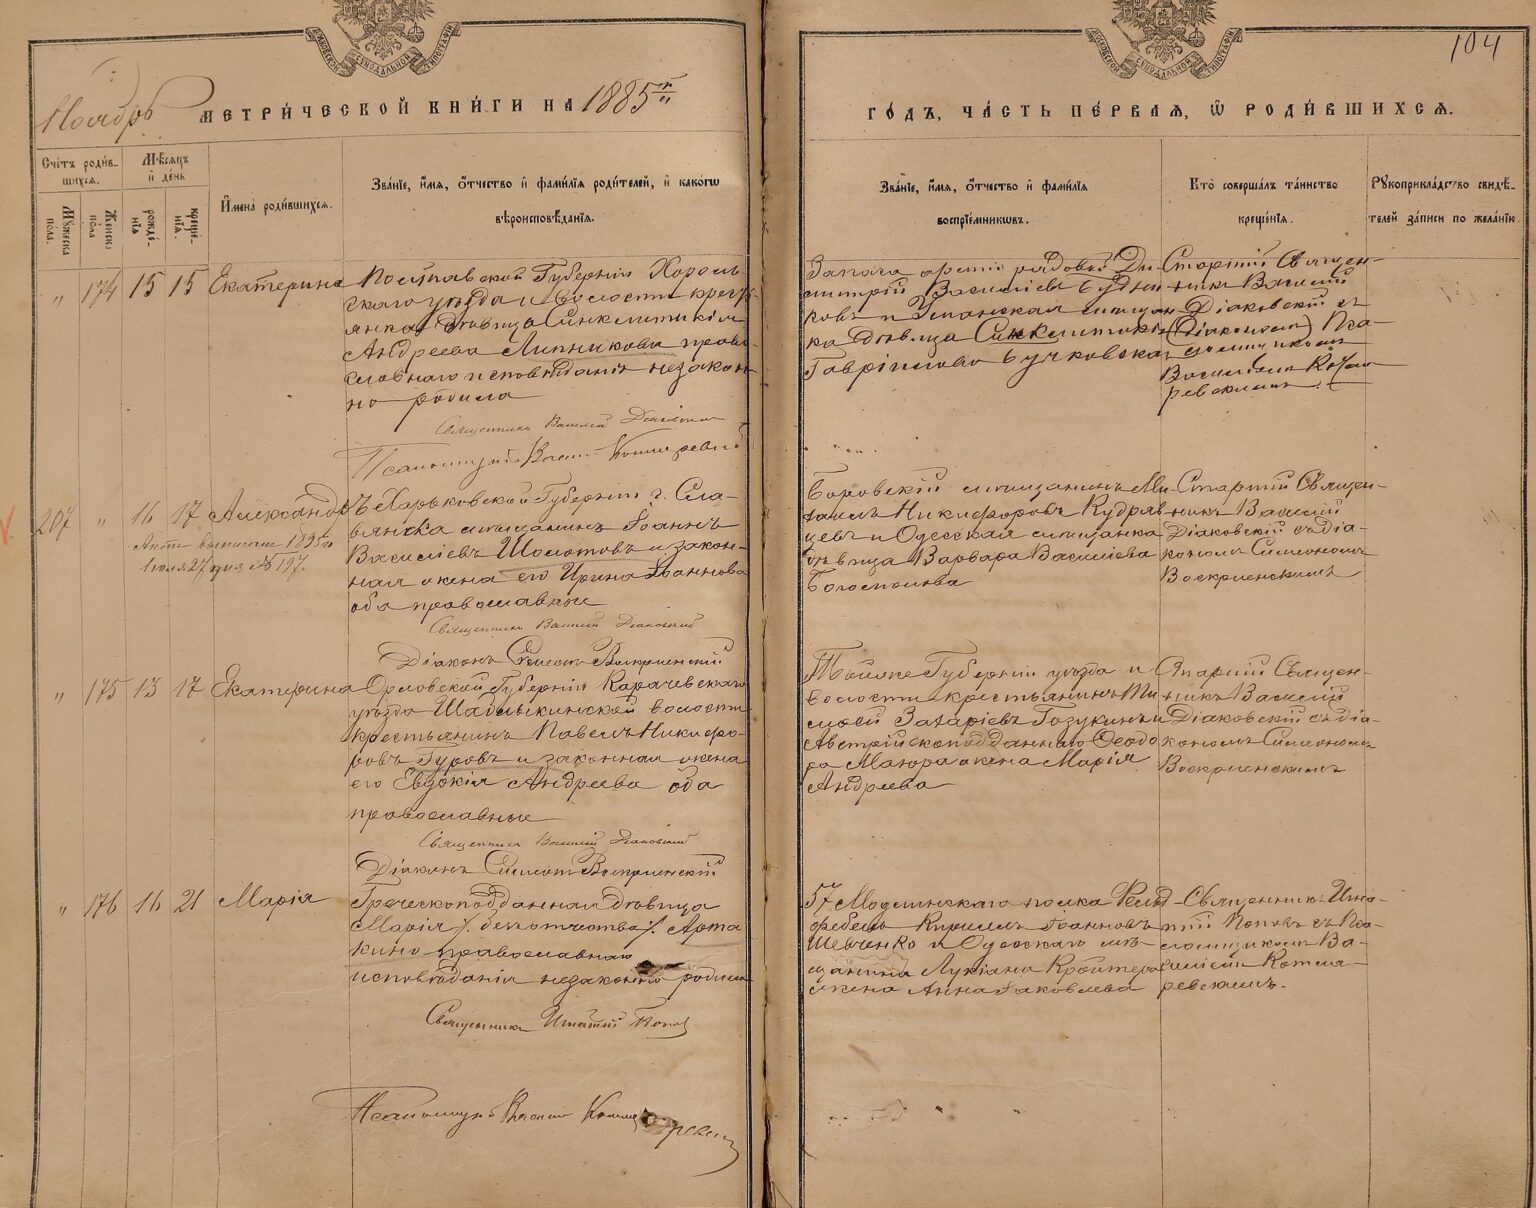 104
МОСКОВСКОЙ СѴНОДАЛЬНОЙ ТИПОГРАФІИ
МОСКОВСКОЙ СѴНОДАЛЬНОЙ ТИПОГРАФІИ
Ноябрь МЕТРИ́ЧЕСКОЙ КНИ́ГИ НА 1885 г.
ГО́ДЪ, ЧА́СТЬ ПЕ́РВАѦ, Ѡ҆ РОДИ́ВШИХСѦ.
Сче́тъ роди́в-
шихсѧ.
Мꙋжеска по́ла.
Же́нска по́ла
Мѣ́сѧцъ
и҆ де́нь
рожде́-
нїѧ
креще́-
нїѧ.
И҆мена̀ роди́вшихсѧ.
Зва́нїе, и҆́мѧ, ѻ҆́тчество и҆ фамѝлїѧ роди́телей, и҆ како́гѡ
вѣроисповѣ́данїѧ.
Зва́нїе, и҆́мѧ, ѻ҆́тчество и҆ фами́лїѧ
воспрїе́мникѡвъ.
Кто̀ соверша́лъ та́инство
креще́нїѧ.
Рꙋкоприкла́дство свидѣ́-
телей за́писи по жела́нїю
" 174 15 15 Екатерина
Полтавской Губерніи Хороль-
скаго уѣзда и волости кресть-
янка дѣвица Синклитикія
Андреева Липникова право-
славнаго исповѣданія незакон-
но родила
Священникъ Василій Діаковскій
Псаломщикъ Василій Котляревскій
Запаса арміи рядовой Ди-
митрій Василіевъ
ковъ и Уманская мѣщан-
ка дѣвица Синклитикія
Гавріилова Бучковская
Старшій Священ-
никъ Василій
Діаковскій съ
(Діакономъ) Пса-
ломщикомъ
Василіемъ Котля-
ревскимъ.
207 " 16 17 Александръ
Актъ выписанъ 1895 г.
Іюля 27 дня № 197.
Харьковской Губерніи г. Сла-
вянска мѣщанинъ Іоаннъ
Василіевъ Шолотовъ и закон-
ная жена его Ирина Іоаннова
оба православные
Священникъ Василій Діаковскій
Діаконъ Симеонъ Воскресенскій
Боровскій мѣщанинъ Ми-
хаилъ Никифоровъ Кудряв-
цевъ и Одесская мѣщанка
дѣвица Варвара Василіева
Богомолова
Старшій Священ-
никъ Василій
Діаковскій съ діа-
кономъ Симеономъ
Воскресенскимъ
" 175 13 17 Екатерина
Орловской Губерніи Карачевскаго
уѣзда Шаблыкинской волости
крестьянинъ Павелъ Никифо-
ровъ Гуровъ и законная жена
его Евдокія Андреева оба
православные
Священникъ Василій Діаковскій
Діаконъ Симеонъ Воскресенскій
Той же Губерніи уѣзда и
волости крестьянинъ Ти-
моѳей Захаріевъ Гозукинъ и
Австрійскоподданнаго Ѳеодо-
ра Мазура жена Марія
Андреева
Старшій Священ-
никъ Василій
Діаковскій съ діа-
кономъ Симеономъ
Воскресенскимъ
" 176 16 21 Марія
Греческоподданная дѣвица
Марія /. безъ отчества /. Арта-
кино православнаго
исповѣданія незаконно родила
Священникъ Игнатій Поповъ
Псаломщикъ Василій Котляревскій
57 Модлинскаго полка Фельд-
фебель Кириллъ Іоанновъ
Шевченко и Одесскаго мѣ-
щанина Лукіана
жена Анна Іаковлева
Священникъ Игна-
тій Поповъ съ Пса-
ломщикомъ Ва-
силіемъ Котля-
ревскимъ.